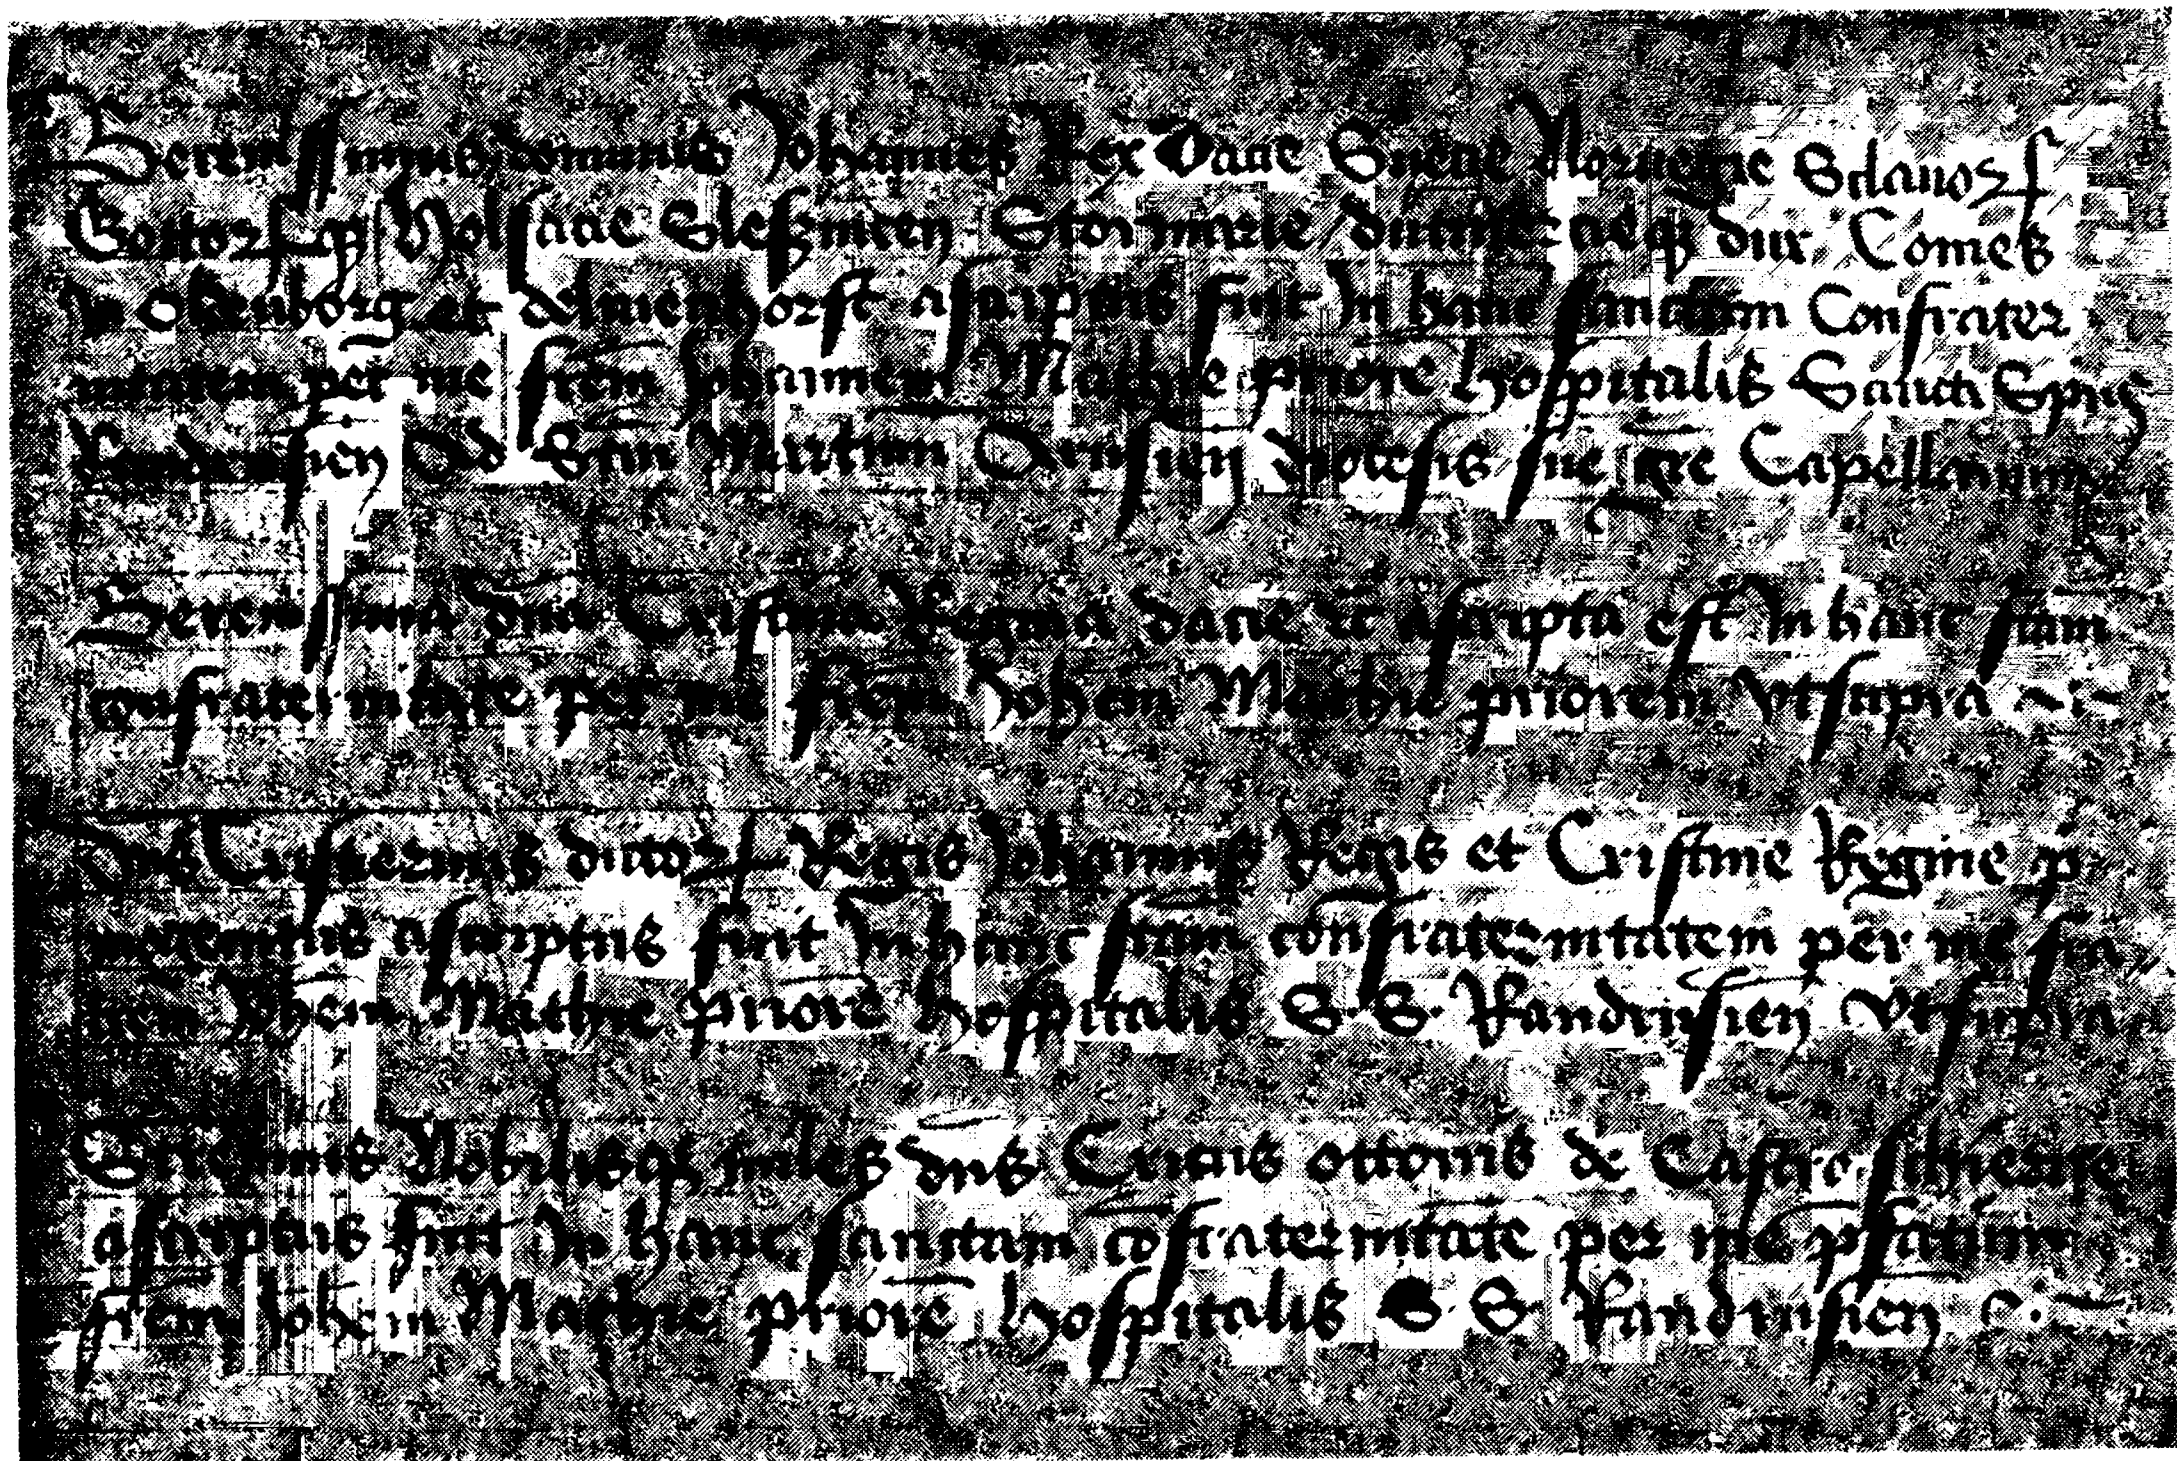 Serenissimus dominus Johannes Rex Dacie Suecie Noruegie Sclauorꝭ
Gottorꝭqꝫ Holsacie Sleßuicen Stormarie ditmercieqꝫ dux Comes
In Oldenborg et delmenhorst ascriptus fuit In hanc sanctam Confrater
nitatem per me frem Johannem Mathie priore hospitalis Sancti Spũs
Randrusien Ad Stm Martinum Otniensien diocesis sue gre Capellanum
Serenissima dna Cristina Regina dacie ꝛc ascripta est In hanc stam
confraternitate per me frem Johem Mathie priorem vt supra
Dns Cristiernus ductorꝭ Regis Johannis Regis et Cristine Regine p
mogenitus ascriptus fuit In hanc stam confraternitatem per me fra
trem Johem Mathie priore hospitalis S. S. Randrusien vt supra
Strenuus Nobilisqꝫ miles dns Ericus ottonis de Castro
ascriptus fuit In hanc sanctam cofraternitate per me pfatum
frem Johem Mathie priore hospitalis S. S. Randrusien